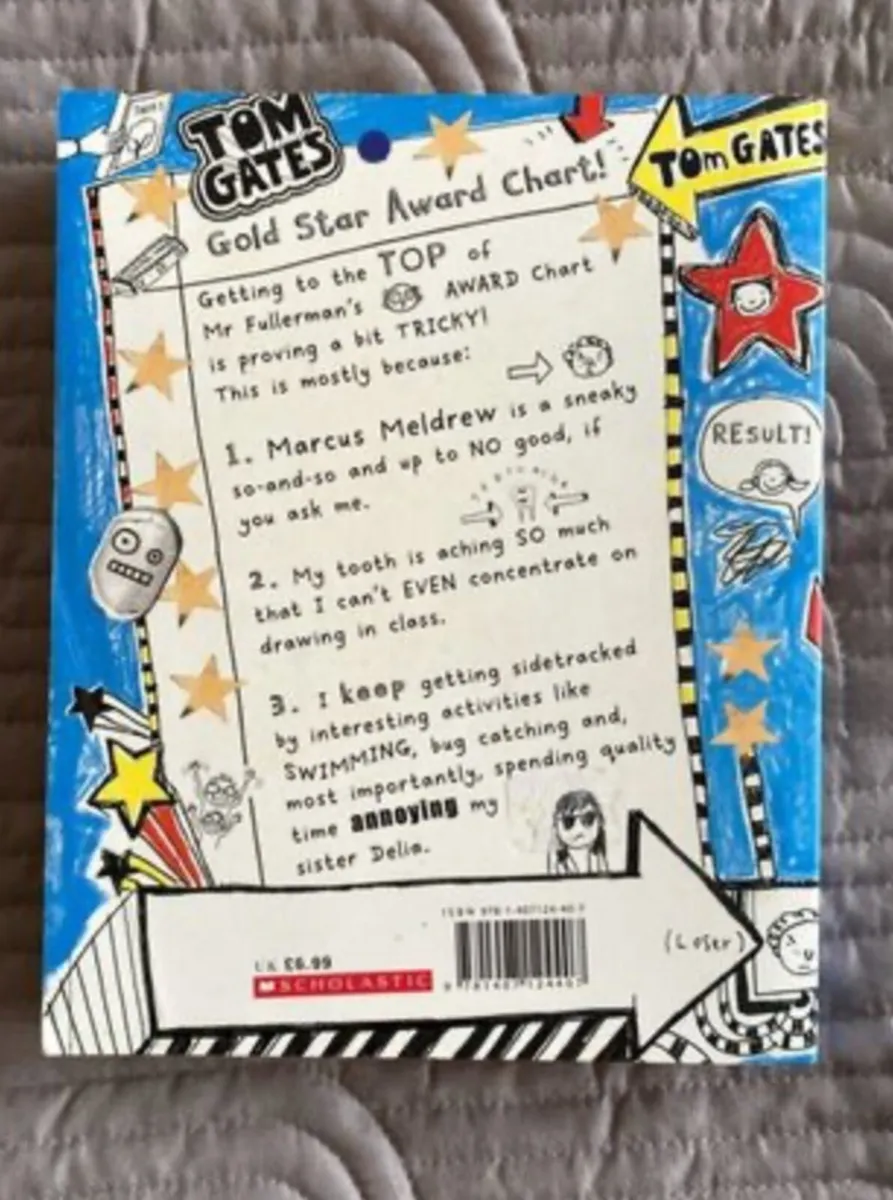 TOM
GATES
TOm GATES
Gold Star Award Chart!
Getting to the TOP of
Mr Fullerman's AWARD Chart
is proving a bit TRICKY!
This is mostly because:
1. Marcus Meldrew is a sneaky
so-and-so and up to NO good, if
you ask me.
2. My tooth is aching SO much
that I can't EVEN concentrate on
drawing in class.
3. I keep getting sidetracked
by interesting activities like
SWIMMING, bug catching and,
most importantly, spending quality
time annoying my
sister Delia.
RESULT!
UK £6.99
SCHOLASTIC
(Loser)